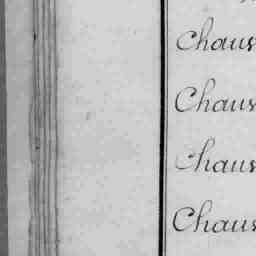 Chaus
Chaus
Chaus
Chaus